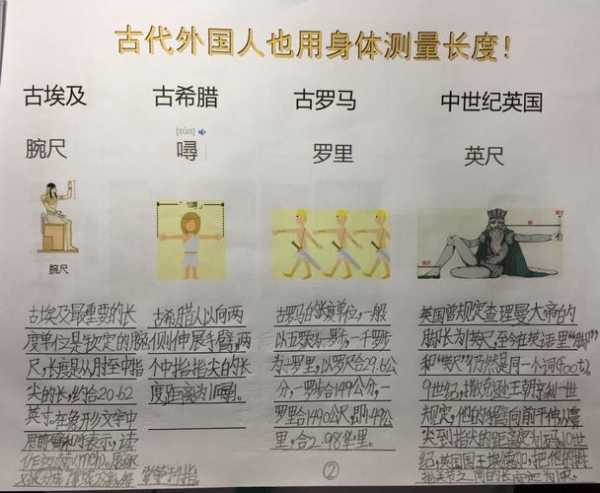 古代外国人也用身体测量长度!
古埃及
古希腊
古罗马
中世纪英国
腕尺
噚
罗里
英尺
腕尺
古埃及最重要的长
度单位是钦定的腕
尺,长度是从肘至中指
尖的长,约合20.62
英寸。在象形文字中
古希腊人以向两
侧伸展手臂,两
个中指指尖的长
度距离为1噚。
古罗马的 单位,一般
以五 为一罗步,一千罗步
为一罗里,以罗尺合29.6公
分,一罗步合149公分,一
罗里合1490公尺,即1.49公
里,合2.98华里。
英国曾规定查理曼大帝的
脚长为1英尺,至今在英语里“脚”
和“英尺”仍然是同一个词(foot)。
9世纪,撒克逊王朝亨利一世
规定,他的手臂向前平伸从鼻
尖到指尖的距离定为1码。10世
纪,英国国王埃德加,把他的拇
②